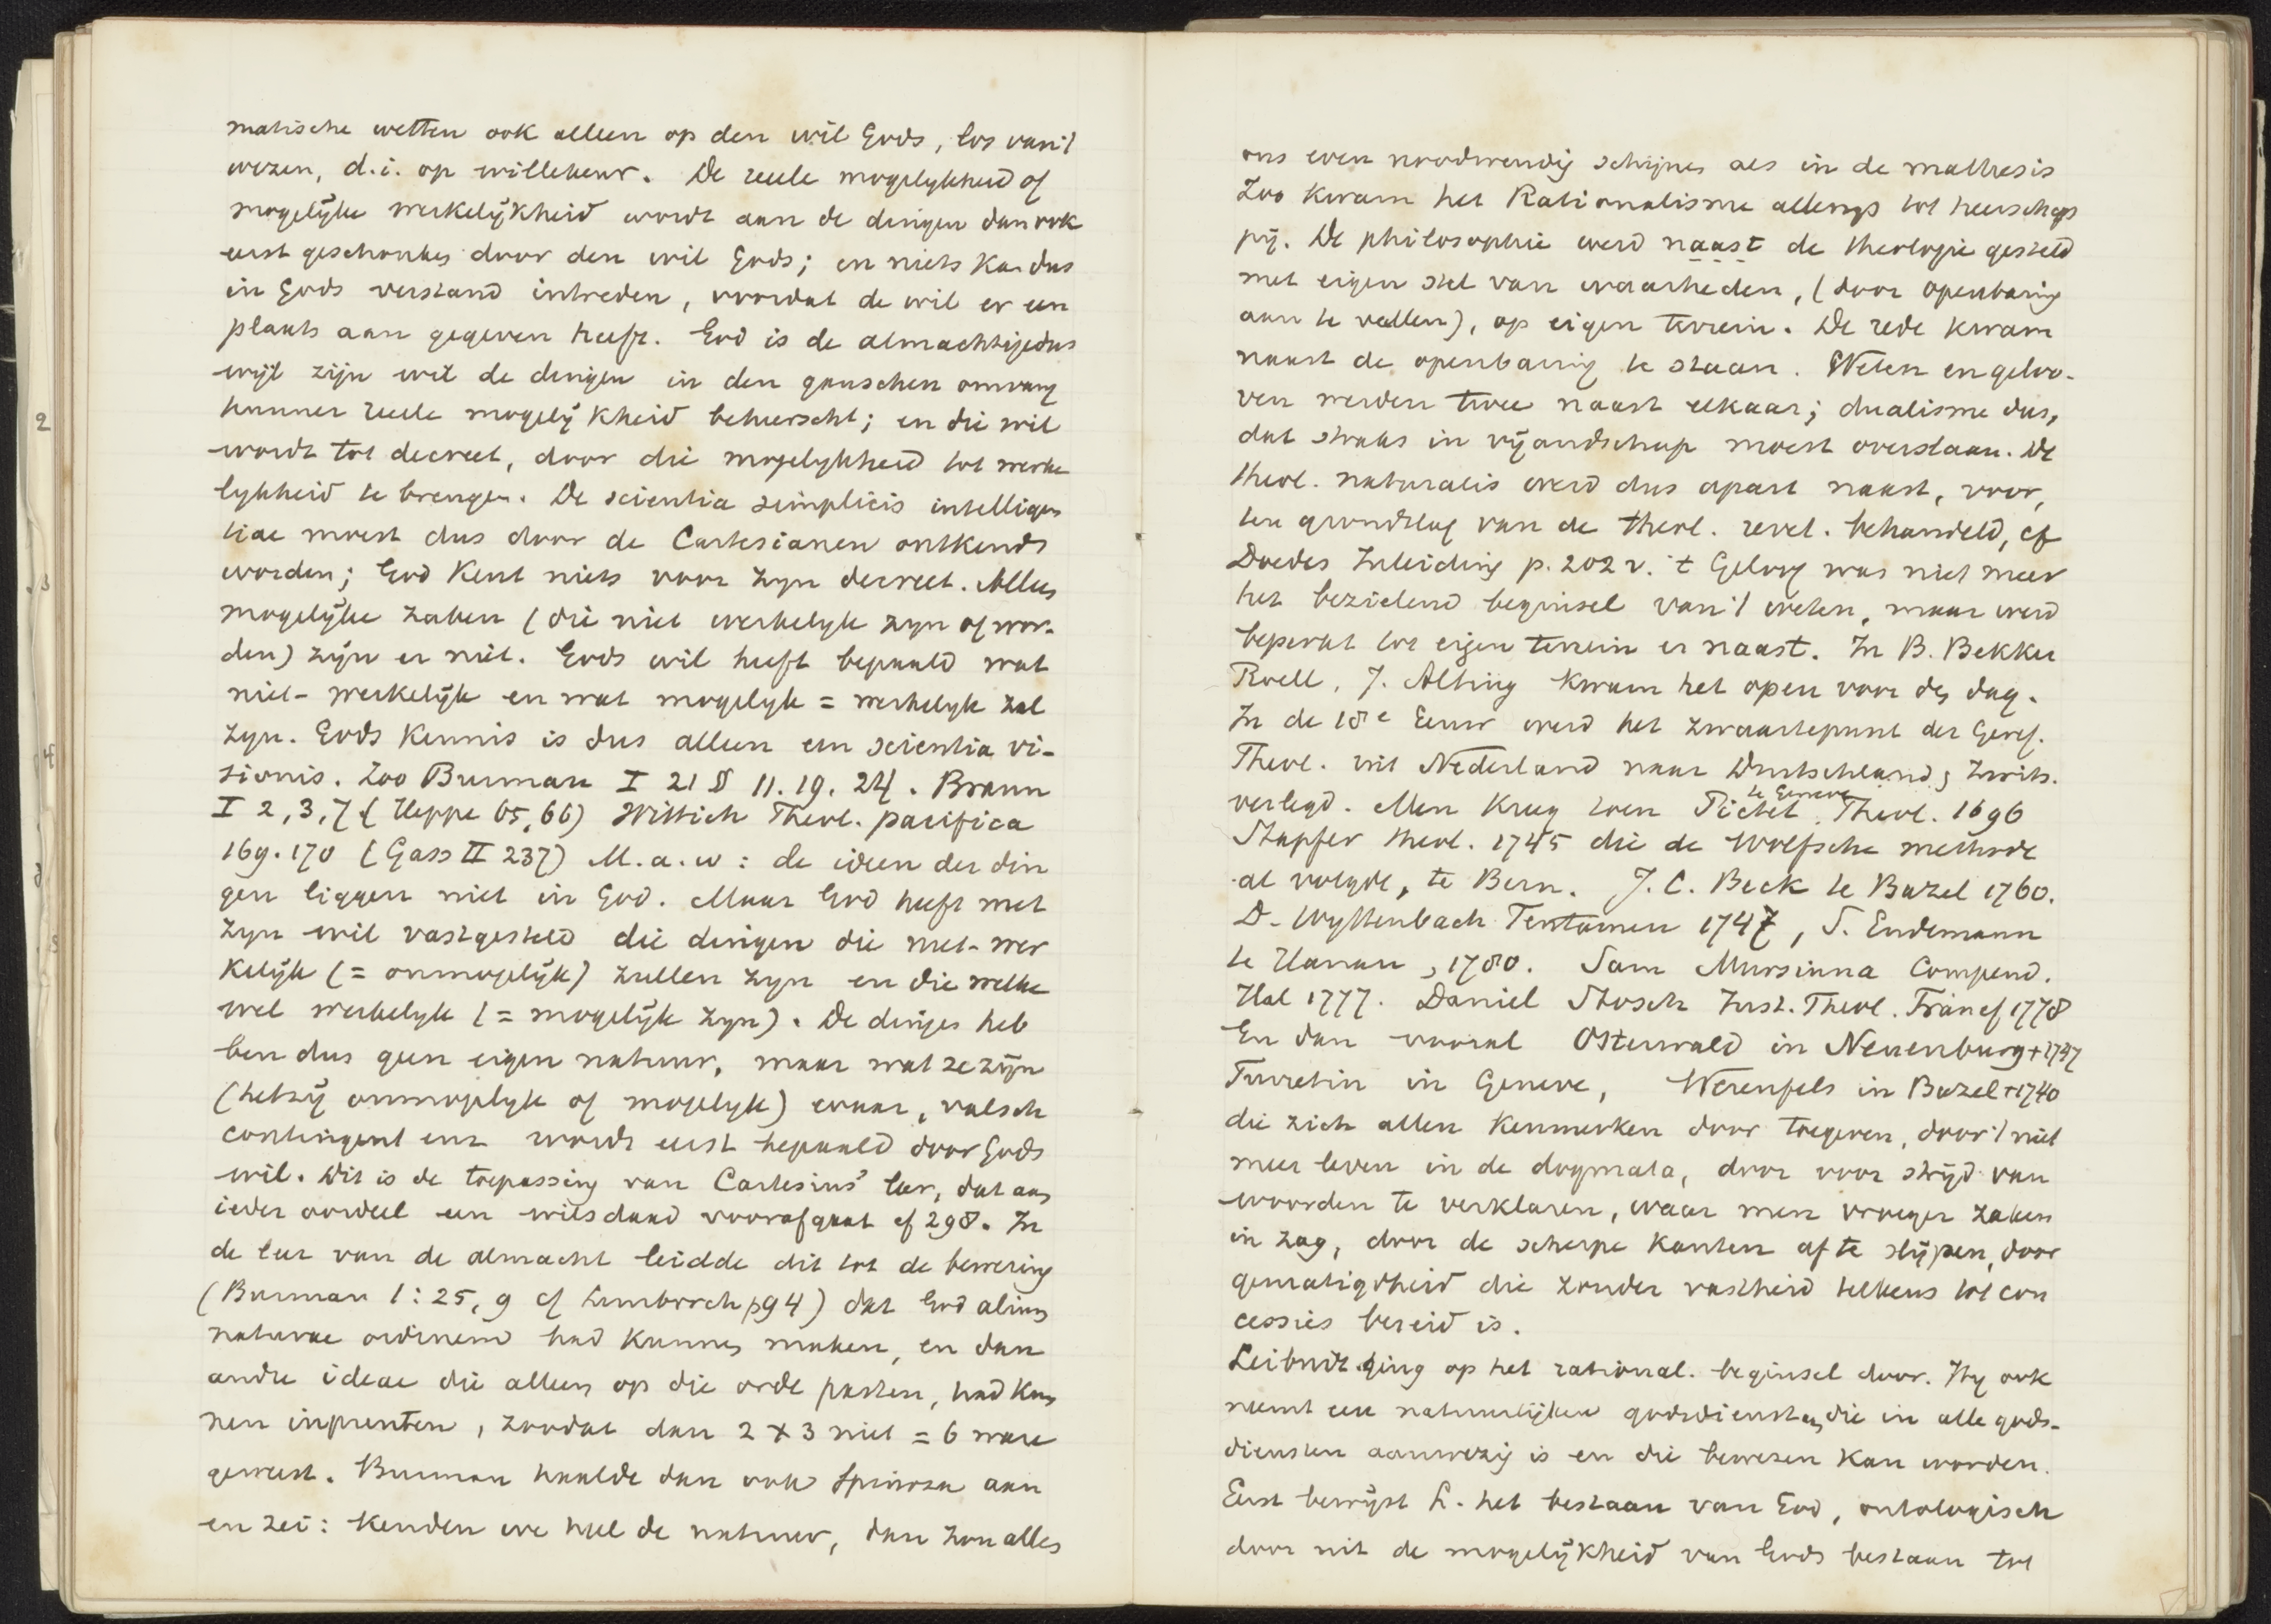 matische wetten ook alleen op den wil Gods, los van 't
wezen, d.i. op willekeur. De reele mogelykheid of
mogelijke werkelijkheid wordt aan de dingen dan ook
eerst geschonken door den wil Gods; en niets kan dus
in Gods verstand intreden, voordat de wil er een
plaats aan gegeven heeft. God is de almachtige dus
wijl zijn wil de dingen in den ganschen omvang
hunner reele mogelijkheid beheerscht; en die wil
wordt tot decreet, door die mogelykheid tot werke
lykheid te brengen. De scientia simplicis intelligen
tiae moest dus door de Cartesianen ontkend
worden; God kent niets voor zyn decreet. Alleen
mogelijke zaken (die niet werkelyk zyn of wor-
den) zijn er niet. Gods wil heeft bepaald wat
niet-werkelijk en wat mogelyk = werkelyk zal
zyn. Gods kennis is dus alleen een scientia vi-
sionis. Zoo Burman I 21 § 11. 19. 24. Braun
I 2, 3, 7 (Heppe 65, 66) Wittich Theol. pacifica
169. 170 (Gass II 237) M. a. w: de ideen der din
gen liggen niet in God. Maar God heeft met
zyn wil vastgesteld die dingen die niet-wer
kelijk (= onmogelijk) zullen zyn en die welke
wel werkelyk (= mogelijk zyn). De dingen heb
ben dus geen eigen natuur, maar wat ze zijn
(hetzij onmogelyk of mogelyk) waar, valsch
contingent enz wordt eerst bepaald door Gods
wil. Dit is de toepassing van Cartesius' leer, dat aan
ieder oordeel een wilsdaad voorafgaat cf 298. In
de leer van de almacht leidde dit tot de bewering
(Burman 1:25, 9 cf Limborch p94) dat God alium
naturae ordinem had kunnen maken, en dan
andre ideae die alleen op die orde pasten, had kun
nen inprenten, zoodat dan 2 x 3 niet = 6 ware
geweest. Burman haalde dan ook Spinoza aan
en zei: kenden we heel de natuur, dan zou alles
ons even noodwendig schijnen als in de mathesis
Zoo kwam het Rationalisme allengs tot heerschap
pij. De philosophie werd naast de theologie gesteld
met eigen stel van waarheden, (door openbaring
aan te vullen), op eigen terrein. De rede kwam
naast de openbaring te staan. Weten en geloo-
ven werden twee naast elkaar; dualisme dus,
dat straks in vijandschap moest overslaan. De
theol. naturalis werd dus apart naast, voor,
ten grondslag van de theol. revel. behandeld, cf
Doedes Inleiding p. 202 v. 't Geloof was niet meer
het bezielend beginsel van 't weten, maar werd
beperkt tot eigen terrein er naast. In B. Bekker
Roell, J. Alting kwam het open voor den dag.
In de 18e Eeuw werd het zwaartepunt der Geref.
Theol. uit Nederland naar Duitschland, Zwits.
verlegd. Men kreeg toen Pictet te Geneve Theol. 1696
Stapfer theol. 1745 die de Wolfsche methode
al volgde, te Bern. J. C. Beck te Bazel 1760.
D. Wyttenbach Tentamen 1747, S. Endemann
te Hanau, 1780. Sam Mursinna Compend.
Hal 1777. Daniel Stosch Inst. Theol. Francf 1778
En dan vooral Osterwald in Neuenburg + 1747
Turretin in Geneve, Werenfels in Bazel + 1740
die zich allen kenmerken door toegeven, door 't niet
meer leven in de dogmata, door voor strijd van
woorden te verklaren, waar men vroeger zaken
in zag, door de scherpe kanten af te slijpen, door
gematigdheid die zonder vastheid telkens tot con
cessies bereid is.
Leibnitz ging op het rational. beginsel door. Hy ook
neemt een natuurlijken godsdienst aan, die in alle gods-
diensten aanwezig is en die bewezen kan worden.
Eerst bewijst L. het bestaan van God, ontologisch
door uit de mogelijkheid van Gods bestaan tot